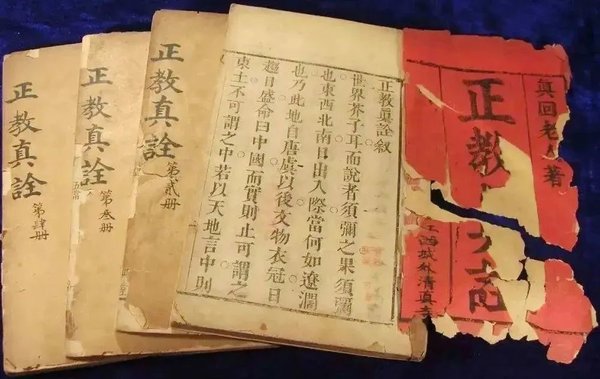 眞回老人著
正教
城外清真
正教眞詮叙
世界芥子耳而說者須彌之果須彌
也東西北南日出入際當何如遼濶
也乃此地自唐虞以後文物衣冠日
趨日盛命曰中國而實則止可謂之
東土不可謂之中若以天地言中則
正教真詮
第貳册
正教真詮
第叁册
正教真詮
第肆册